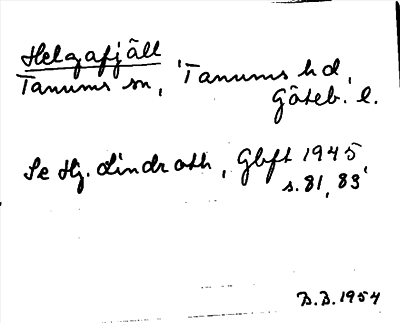 Helgafjäll
Tanums sn, Tanums hd,
Göteb. l.
Se Hj. Lindroth, Gbft 1945,
s. 81, 83
B.B. 1954